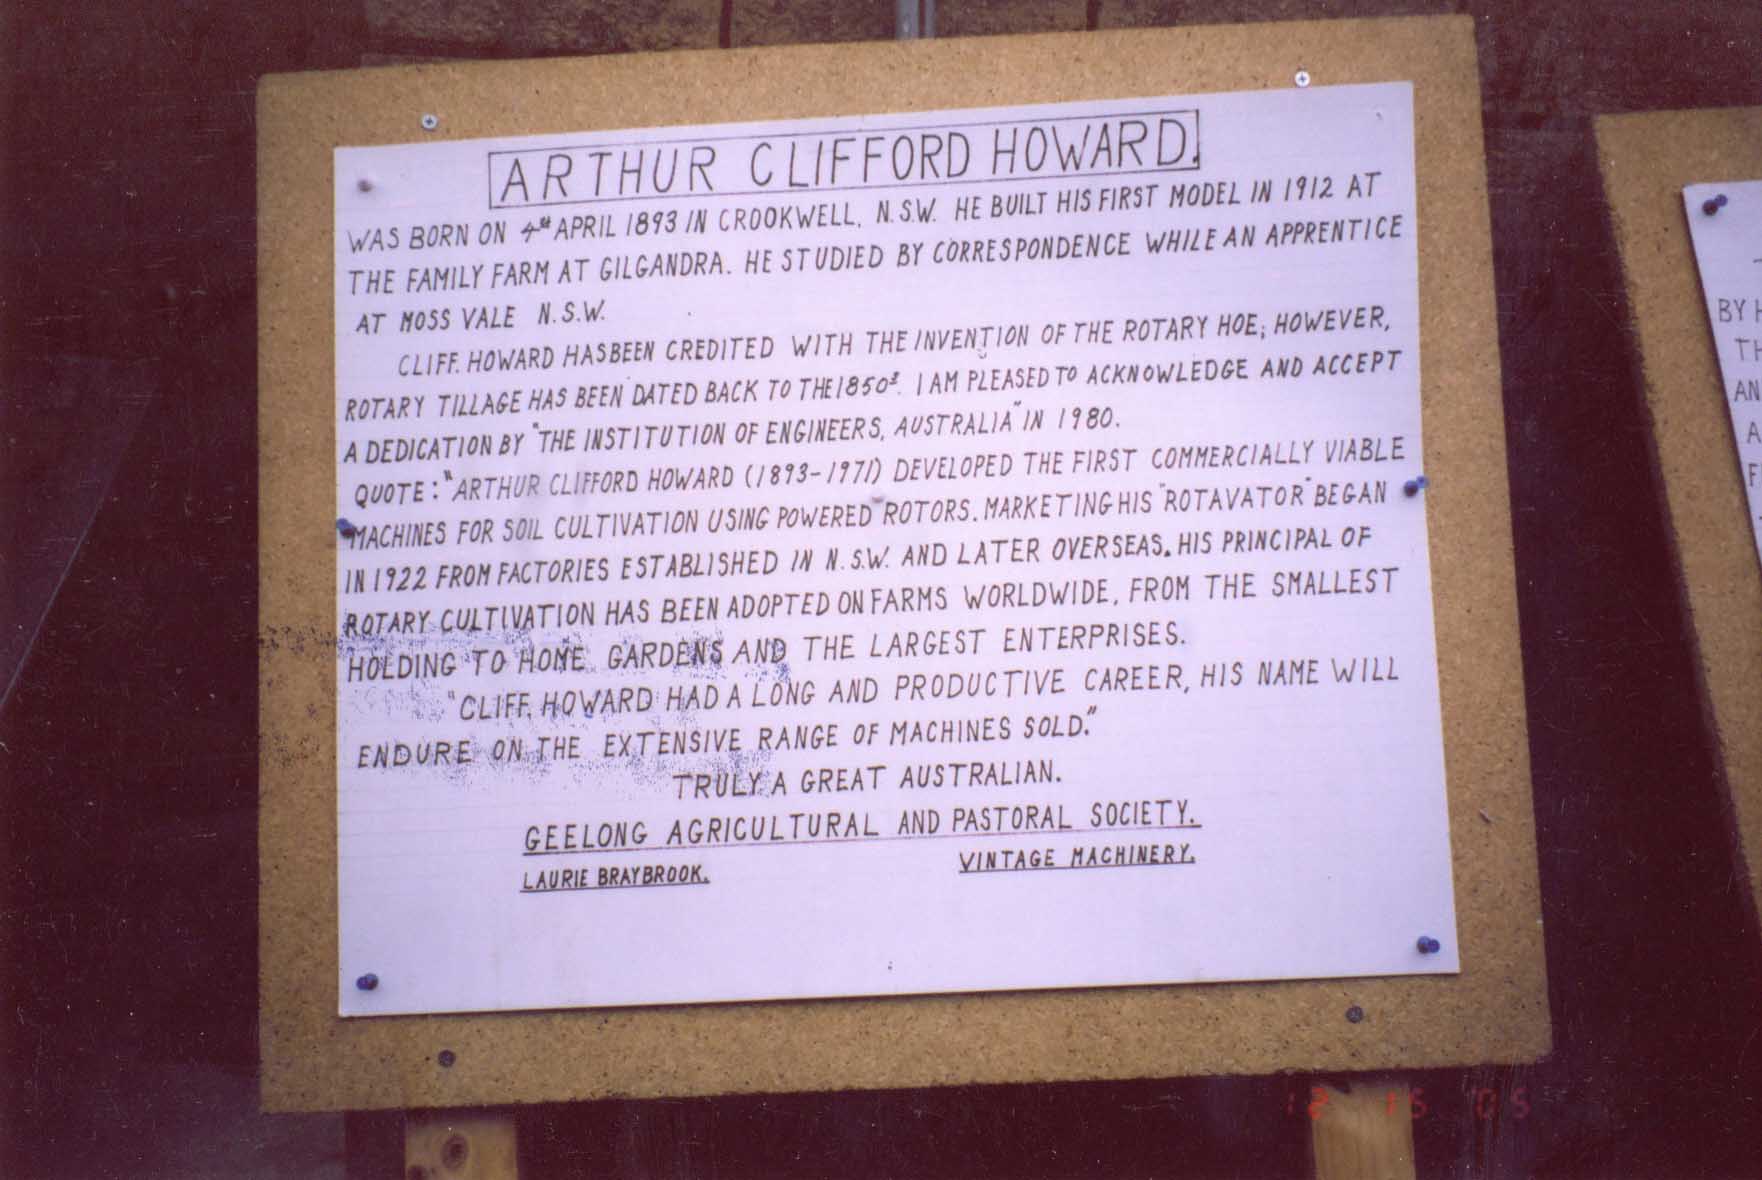 ARTHUR CLIFFORD HOWARD.
WAS BORN ON 4th APRIL 1893 IN CROOKWELL, N.S.W. HE BUILT HIS FIRST MODEL IN 1912 AT
THE FAMILY FARM AT GILGANDRA. HE STUDIED BY CORRESPONDENCE WHILE AN APPRENTICE
AT MOSS VALE N.S.W.
CLIFF. HOWARD HAS BEEN CREDITED WITH THE INVENTION OF THE ROTARY HOE; HOWEVER,
ROTARY TILLAGE HAS BEEN DATED BACK TO THE 1850s. I AM PLEASED TO ACKNOWLEDGE AND ACCEPT
A DEDICATION BY "THE INSTITUTION OF ENGINEERS, AUSTRALIA" IN 1980.
QUOTE: "ARTHUR CLIFFORD HOWARD (1893-1971) DEVELOPED THE FIRST COMMERCIALLY VIABLE
MACHINES FOR SOIL CULTIVATION USING POWERED ROTORS. MARKETING HIS "ROTAVATOR" BEGAN
IN 1922 FROM FACTORIES ESTABLISHED IN N.S.W. AND LATER OVERSEAS. HIS PRINCIPAL OF
ROTARY CULTIVATION HAS BEEN ADOPTED ON FARMS WORLDWIDE, FROM THE SMALLEST
HOLDING TO HOME GARDENS AND THE LARGEST ENTERPRISES.
"CLIFF. HOWARD HAD A LONG AND PRODUCTIVE CAREER, HIS NAME WILL
ENDURE ON THE EXTENSIVE RANGE OF MACHINES SOLD."
TRULY A GREAT AUSTRALIAN.
GEELONG AGRICULTURAL AND PASTORAL SOCIETY.
LAURIE BRAYBROOK. VINTAGE MACHINERY.
BY
AN
12 15 05